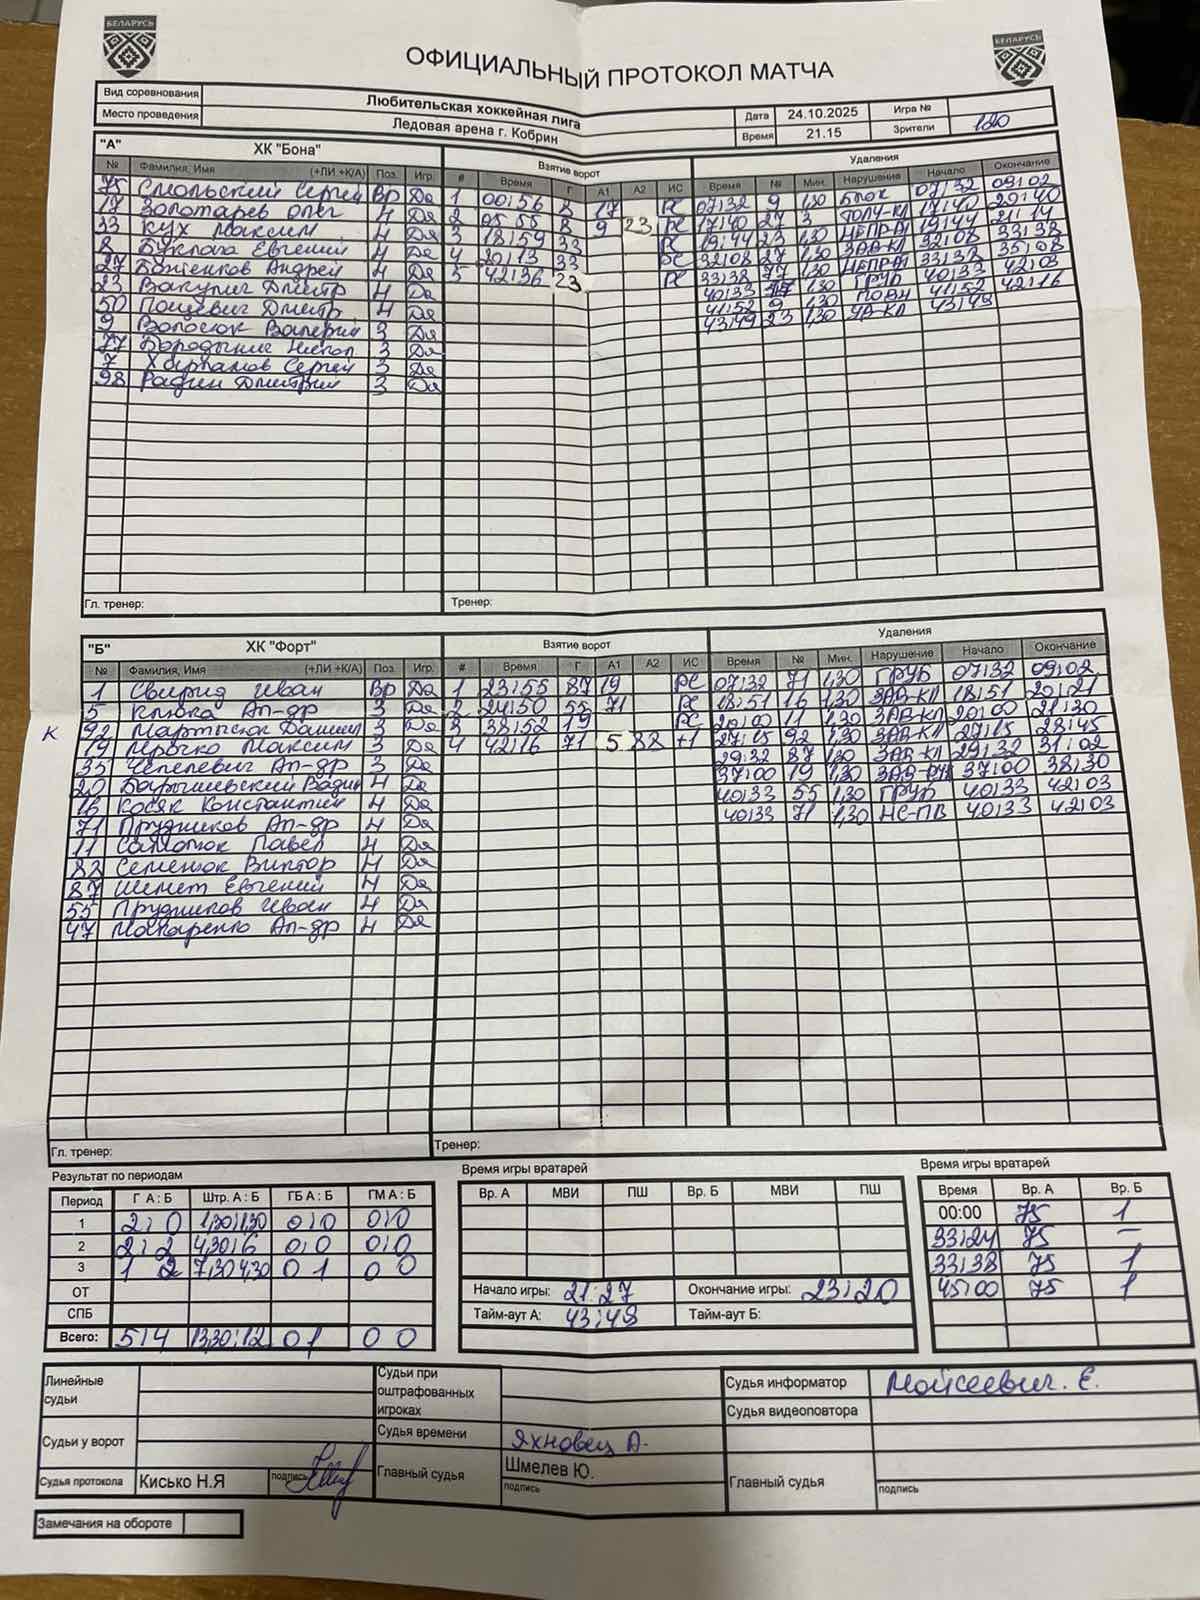 БЕЛАРУСЬ БЕЛАРУСЬ
ОФИЦИАЛЬНЫЙ ПРОТОКОЛ МАТЧА
Вид соревнования Любительская хоккейная лига Дата 24.10.2025 Игра №
Место проведения Ледовая арена г. Кобрин Время 21.15 Зрители 120
"А" ХК "Бона" Взятие ворот Удаления
№ Фамилия, Имя (+ЛИ +К/А) Поз Игр. # Время Г А1 А2 ИС Время № Мин. Нарушение Начало Окончание
75 Смольский Сергей Вр Да 1 00:56 8 17 РС 07:32 9 1,30 Блок 07:32 09:02
17 Золотарев Олег Ч Да 2 05:55 8 9 23 РС 17:40 27 3 17:40 20:40
33 Кух Максим Ч Да 3 18:59 33 РС 19:44 23 1,30 19:44 21:14
8 Евгений Ч Да 4 20:13 33 РС 32:08 27 1,30 ЗАВ-КЛ 32:08 33:38
27 Андрей Ч Да 5 42:36 23 РС 33:38 77 1,30 33:38 35:08
23 Вакулич Дмитр Ч Да 40:33 1,30 ГРУБ 40:33 42:03
50 Дмитр Ч Да 41:52 9 1,30 41:52 42:16
9 Волосюк Валерий З Да 43:49 23 1,30 43:49
77 З Да
7 Сергей З Да
98 Радин Дмитрий З Да
Гл. тренер: Тренер:
"Б" ХК "Форт" Взятие ворот Удаления
№ Фамилия, Имя (+ЛИ +К/А) Поз Игр. # Время Г А1 А2 ИС Время № Мин. Нарушение Начало Окончание
1 Свирид Иван Вр Да 1 23:55 87 19 РС 07:32 71 1,30 ГРУБ 07:32 09:02
5 Клюка Ал-др З Да 2 24:50 55 71 РС 18:51 16 1,30 ЗАВ-КЛ 18:51 20:21
К 92 Мартысюк Даниил З Да 3 38:52 19 РС 20:00 11 1,30 ЗАВ-КЛ 20:00 21:30
19 Мрочко Максим З Да 4 42:16 71 5 88 +1 27:15 92 1,30 ЗАВ-КЛ 27:15 28:45
35 Чепелевич Ал-др З Да 29:32 87 1,30 ЗАВ-КЛ 29:32 31:02
20 Вадим Ч Да 37:00 19 1,30 37:00 38:30
16 Косяк Константин Ч Да 40:33 55 1,30 ГРУБ 40:33 42:03
71 Прудников Ал-др Ч Да 40:33 71 1,30 НС-ПВ 40:33 42:03
11 Павел Ч Да
88 Семенюк Виктор Ч Да
87 Шемет Евгений Ч Да
55 Прудников Иван Ч Да
47 Макаренко Ал-др Ч Да
Гл. тренер: Тренер:
Результат по периодам Время игры вратарей Время игры вратарей
Период Г А : Б Штр. А : Б ГБ А : Б ГМ А : Б Вр. А МВИ ПШ Вр. Б МВИ ПШ Время Вр. А Вр. Б
1 2:0 1,30:1,30 0:0 0:0 00:00 75 1
2 2:2 4,30:6 0:0 0:0 33:24 75 –
3 1 2 7,30 4,30 0 1 0 0 33:38 75 1
ОТ Начало игры: 21:27 Окончание игры: 23:20 45:00 75 1
СПБ Тайм-аут А: 43:49 Тайм-аут Б:
Всего: 5:4 13,30:12 0 1 0 0
Линейные судьи Судьи при оштрафованных игроках Судья информатор Мойсеевич. Е.
Судья видеоповтора
Судьи у ворот Судья времени Яхновец А.
Судья протокола Кисько Н.Я подпись Главный судья Шмелев Ю. подпись Главный судья подпись
Замечания на обороте